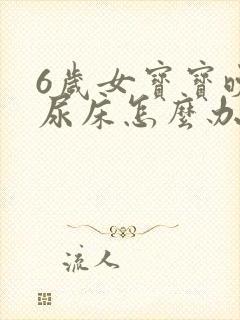 6歲女寶寶晚
尿床怎麼办
流人